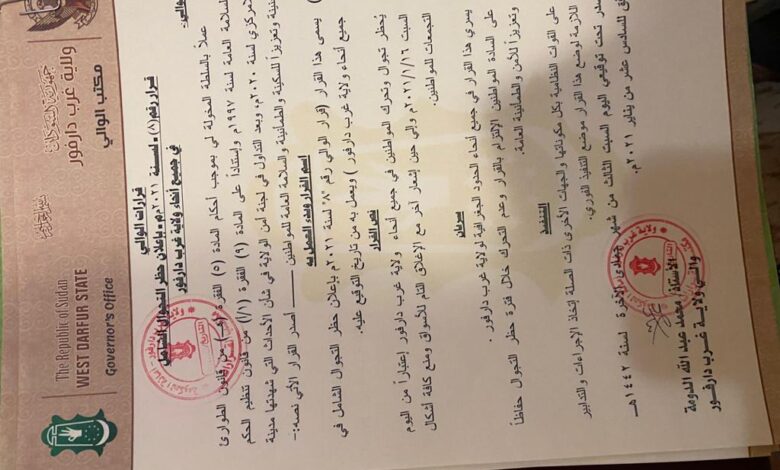 جمهورية السودان
ولاية غرب دارفور
مكتب الوالي
The Republic of Sudan
WEST DARFUR STATE
Governor's Office
قرارات الوالي
قرار رقم (٨) لسنة ٢٠٢١م بإعلان حظر التجوال الشامل
في جميع أنحاء ولاية غرب دارفور
الوالي:
عملاً بالسلطة المخولة لي بموجب أحكام المادة (٥) الفقرة من قانون الطوارئ
السلامة العامة لسنة ١٩٩٧م وإستناداً على المادة (٩) الفقرة (١/أ) من قانون تنظيم الحكم
لمركزي لسنة ٢٠٢٠م، وبعد التداول في لجنة أمن الولاية في شأن الأحداث التي شهدتها مدينة
وتعزيزاً للسكينة والطمأنينة والسلامة العامة للمواطنين أصدر القرار الآتي نصه:-
اسم القرار وبدء العمل به
يسمى هذا القرار (قرار الوالي رقم "٨" لسنة ٢٠٢١م بإعلان حظر التجوال الشامل في
جميع أنحاء ولاية غرب دارفور) ويعمل به من تاريخ التوقيع عليه.
نص القرار
يُحظر تجوال وتحرك المواطنين في جميع أنحاء ولاية غرب دارفور إعتباراً من اليوم
السبت ٢٠٢١/١/١٦م وإلى حين إشعار آخر مع الإغلاق التام للأسواق ومنع كافة أشكال
التجمعات للمواطنين.
سريان
يسري هذا القرار في جميع أنحاء الحدود الجغرافية لولاية غرب دارفور.
على السادة المواطنين الإلتزام بالقرار وعدم التحرك خلال فترة حظر التجوال حفاظاً
وتعزيزاً للأمن والطمأنينة العامة.
التنفيذ
على القوات النظامية بكل مكوناتها والجهات الأخرى ذات الصلة إتخاذ الإجراءات والتدابير
اللازمة لوضع هذا القرار موضع التنفيذ الفوري.
صدر تحت توقيعي اليوم السبت الثالث من شهر جمادى الآخرة لسنة ١٤٤٢هـ
للسادس عشر من يناير ٢٠٢١م.
الأستاذ/ محمد عبد الله الدومة
والي ولاية غرب دارفور